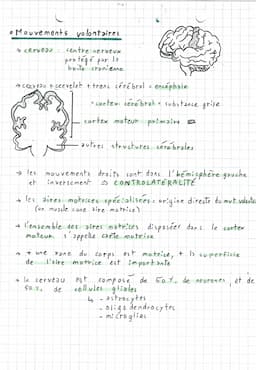 • Mouvements volontaires
→ cerveau : centre nerveux
protégé par la
boîte cranienne
→ cerveau + cervelet + tronc cérébral = encéphale
cortex cérébral = substance grise
cortex moteur primaire =
autres structures cérébrales
→ les mouvements droits sont dans l'hémisphère gauche
et inversement ⇒ CONTROLATÉRALITÉ
→ les aires motrices spécialisées : origine directe du mvt volontaire
(un muscle = une aire motrice)
→ l'ensemble des aires motrices disposées dans le cortex
moteur s'appelle carte motrice
→ + une zone du corps est motrice, + la superficie
de l'aire motrice est importante
→ le cerveau est composé de 50% de neurones et de
50% de cellules gliales
↳ - astrocytes
- oligodendrocytes
- microglies